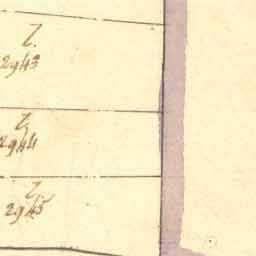 Z.
2943
Z.
2944
Z.
2945